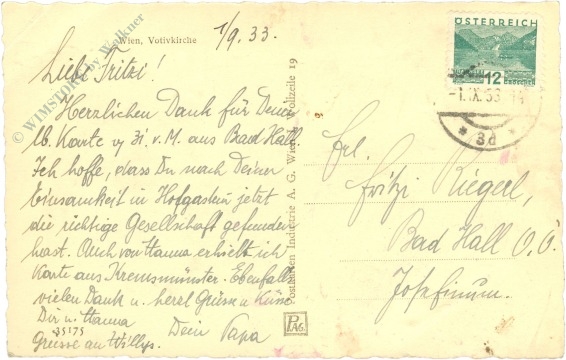 Wien, Votivkirche
1/9. 33.
Liebe Fritzi!
Herzlichen Dank für Deine
lb. Karte v. 31. v. M. aus Bad Hall
Ich hoffe, dass Du nach Deiner
Einsamkeit in Hofgastein jetzt
die richtige Gesellschaft gefunden
hast. Auch von Hanna erhielt ich
Karte aus Kremsmünster. Ebenfalls
vielen Dank u. herzl Grüsse u Küsse
Dir u. Hanna
Dein Papa
Grüsse an Willys.
35175
© WIMSTORY by Walkner
Postkarten Industrie A. G. Wien I, Wollzeile 19
PAG
ÖSTERREICH
12
Groschen
-1.IX.33
* 3d *
Frl.
Fritzi Riegerl,
Bad Hall O.Ö.
Josefinum.